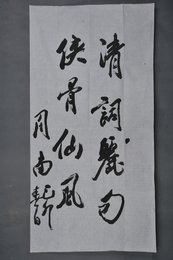 清詞麗句
俠骨仙風
周而